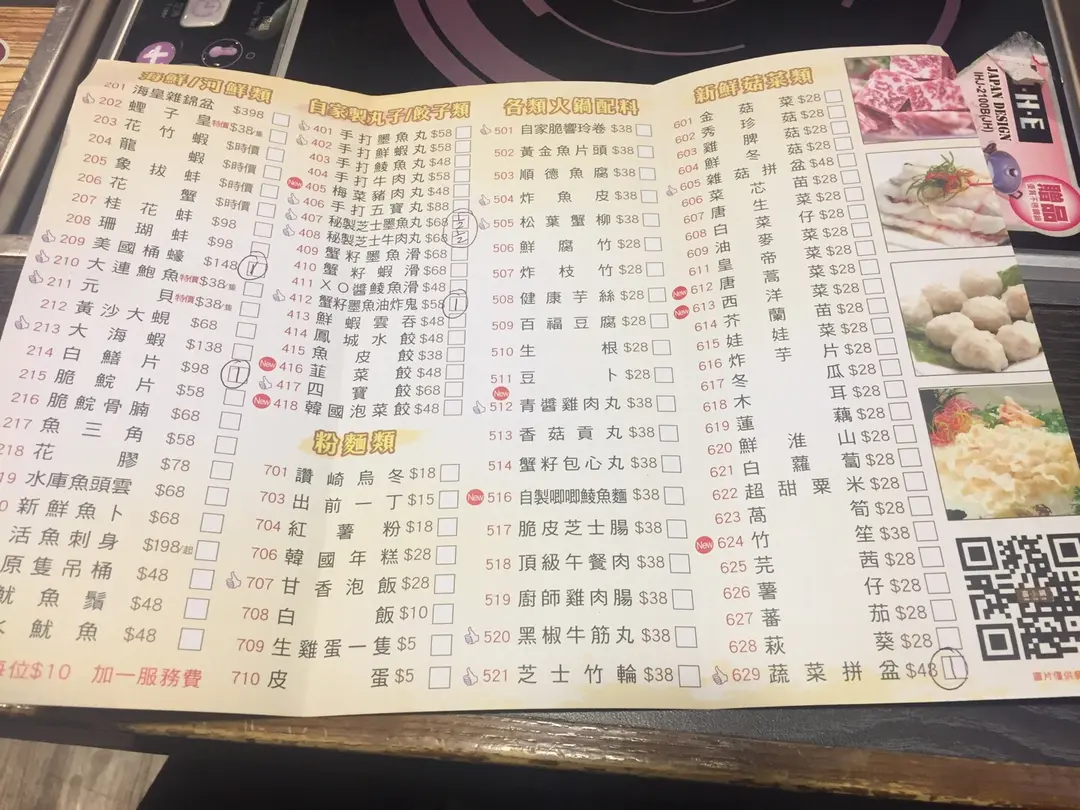 海鮮/河鮮類
201 海皇雜錦盆 $398
202 蟶子皇 特價$38/隻
203 花竹蝦 $時價
204 龍蝦 $時價
205 象拔蚌 $時價
206 花蟹 $時價
207 桂花蚌 $98
208 珊瑚蚌 $98
209 美國桶蠔 $148
210 大連鮑魚 特價$38/隻
211 元貝 特價$38/隻
212 黃沙大蜆 $68
213 大海蝦 $138
214 白鱔片 $98
215 脆鯇片 $58
216 脆鯇骨腩 $68
217 魚三角 $58
218 花膠 $78
19 水庫魚頭雲 $68
0 新鮮魚卜 $68
活魚刺身 $198/起
原隻吊桶 $48
魷魚鬚 $48
魷魚 $48
每位$10 加一服務費
自家製丸子/餃子類
401 手打墨魚丸 $58
402 手打鮮蝦丸 $58
403 手打鯪魚丸 $48
404 手打牛肉丸 $58
New 405 梅菜豬肉丸 $48
406 手打五寶丸 $88
407 秘製芝士墨魚丸 $68
408 秘製芝士牛肉丸 $68
409 蟹籽墨魚滑 $68
410 蟹籽蝦滑 $68
411 XO醬鯪魚滑 $48
412 蟹籽墨魚油炸鬼 $58
413 鮮蝦雲吞 $48
414 鳳城水餃 $48
415 魚皮餃 $38
New 416 韮菜餃 $48
417 四寶餃 $68
New 418 韓國泡菜餃 $48
粉麵類
701 讚崎烏冬 $18
703 出前一丁 $15
704 紅薯粉 $18
706 韓國年糕 $28
707 甘香泡飯 $28
708 白飯 $10
709 生雞蛋一隻 $5
710 皮蛋 $5
各類火鍋配料
501 自家脆響玲卷 $38
502 黃金魚片頭 $38
503 順德魚腐 $38
504 炸魚皮 $38
505 松葉蟹柳 $38
506 鮮腐竹 $28
507 炸枝竹 $28
508 健康芋絲 $28
509 百福豆腐 $28
510 生根 $28
511 豆卜 $28
New 512 青醬雞肉丸 $38
513 香菇貢丸 $38
514 蟹籽包心丸 $38
New 516 自製唧唧鯪魚麵 $38
517 脆皮芝士腸 $38
518 頂級午餐肉 $38
519 廚師雞肉腸 $38
520 黑椒牛筋丸 $38
521 芝士竹輪 $38
新鮮菇菜類
601 金菇 $28
602 秀珍菇 $28
603 雞脾菇 $28
604 鮮冬菇 $28
605 雜菇拼盆 $48
606 菜芯苗 $28
607 唐生菜 $28
608 白菜仔 $28
609 油麥菜 $28
611 皇帝菜 $28
New 612 唐蒿菜 $28
New 613 西洋菜 $28
614 芥蘭苗 $28
615 娃娃菜 $28
616 炸芋片 $28
617 冬瓜 $28
618 木耳 $28
619 蓮藕 $28
620 鮮淮山 $28
621 白蘿蔔 $28
622 超甜粟米 $28
623 萵筍 $28
New 624 竹笙 $38
625 芫茜 $28
626 薯仔 $28
627 蕃茄 $28
628 萩葵 $28
629 蔬菜拼盆 $48
H·E
JAPAN DESIGN
IHJ-2100B(JH)
贈品
圖片僅供